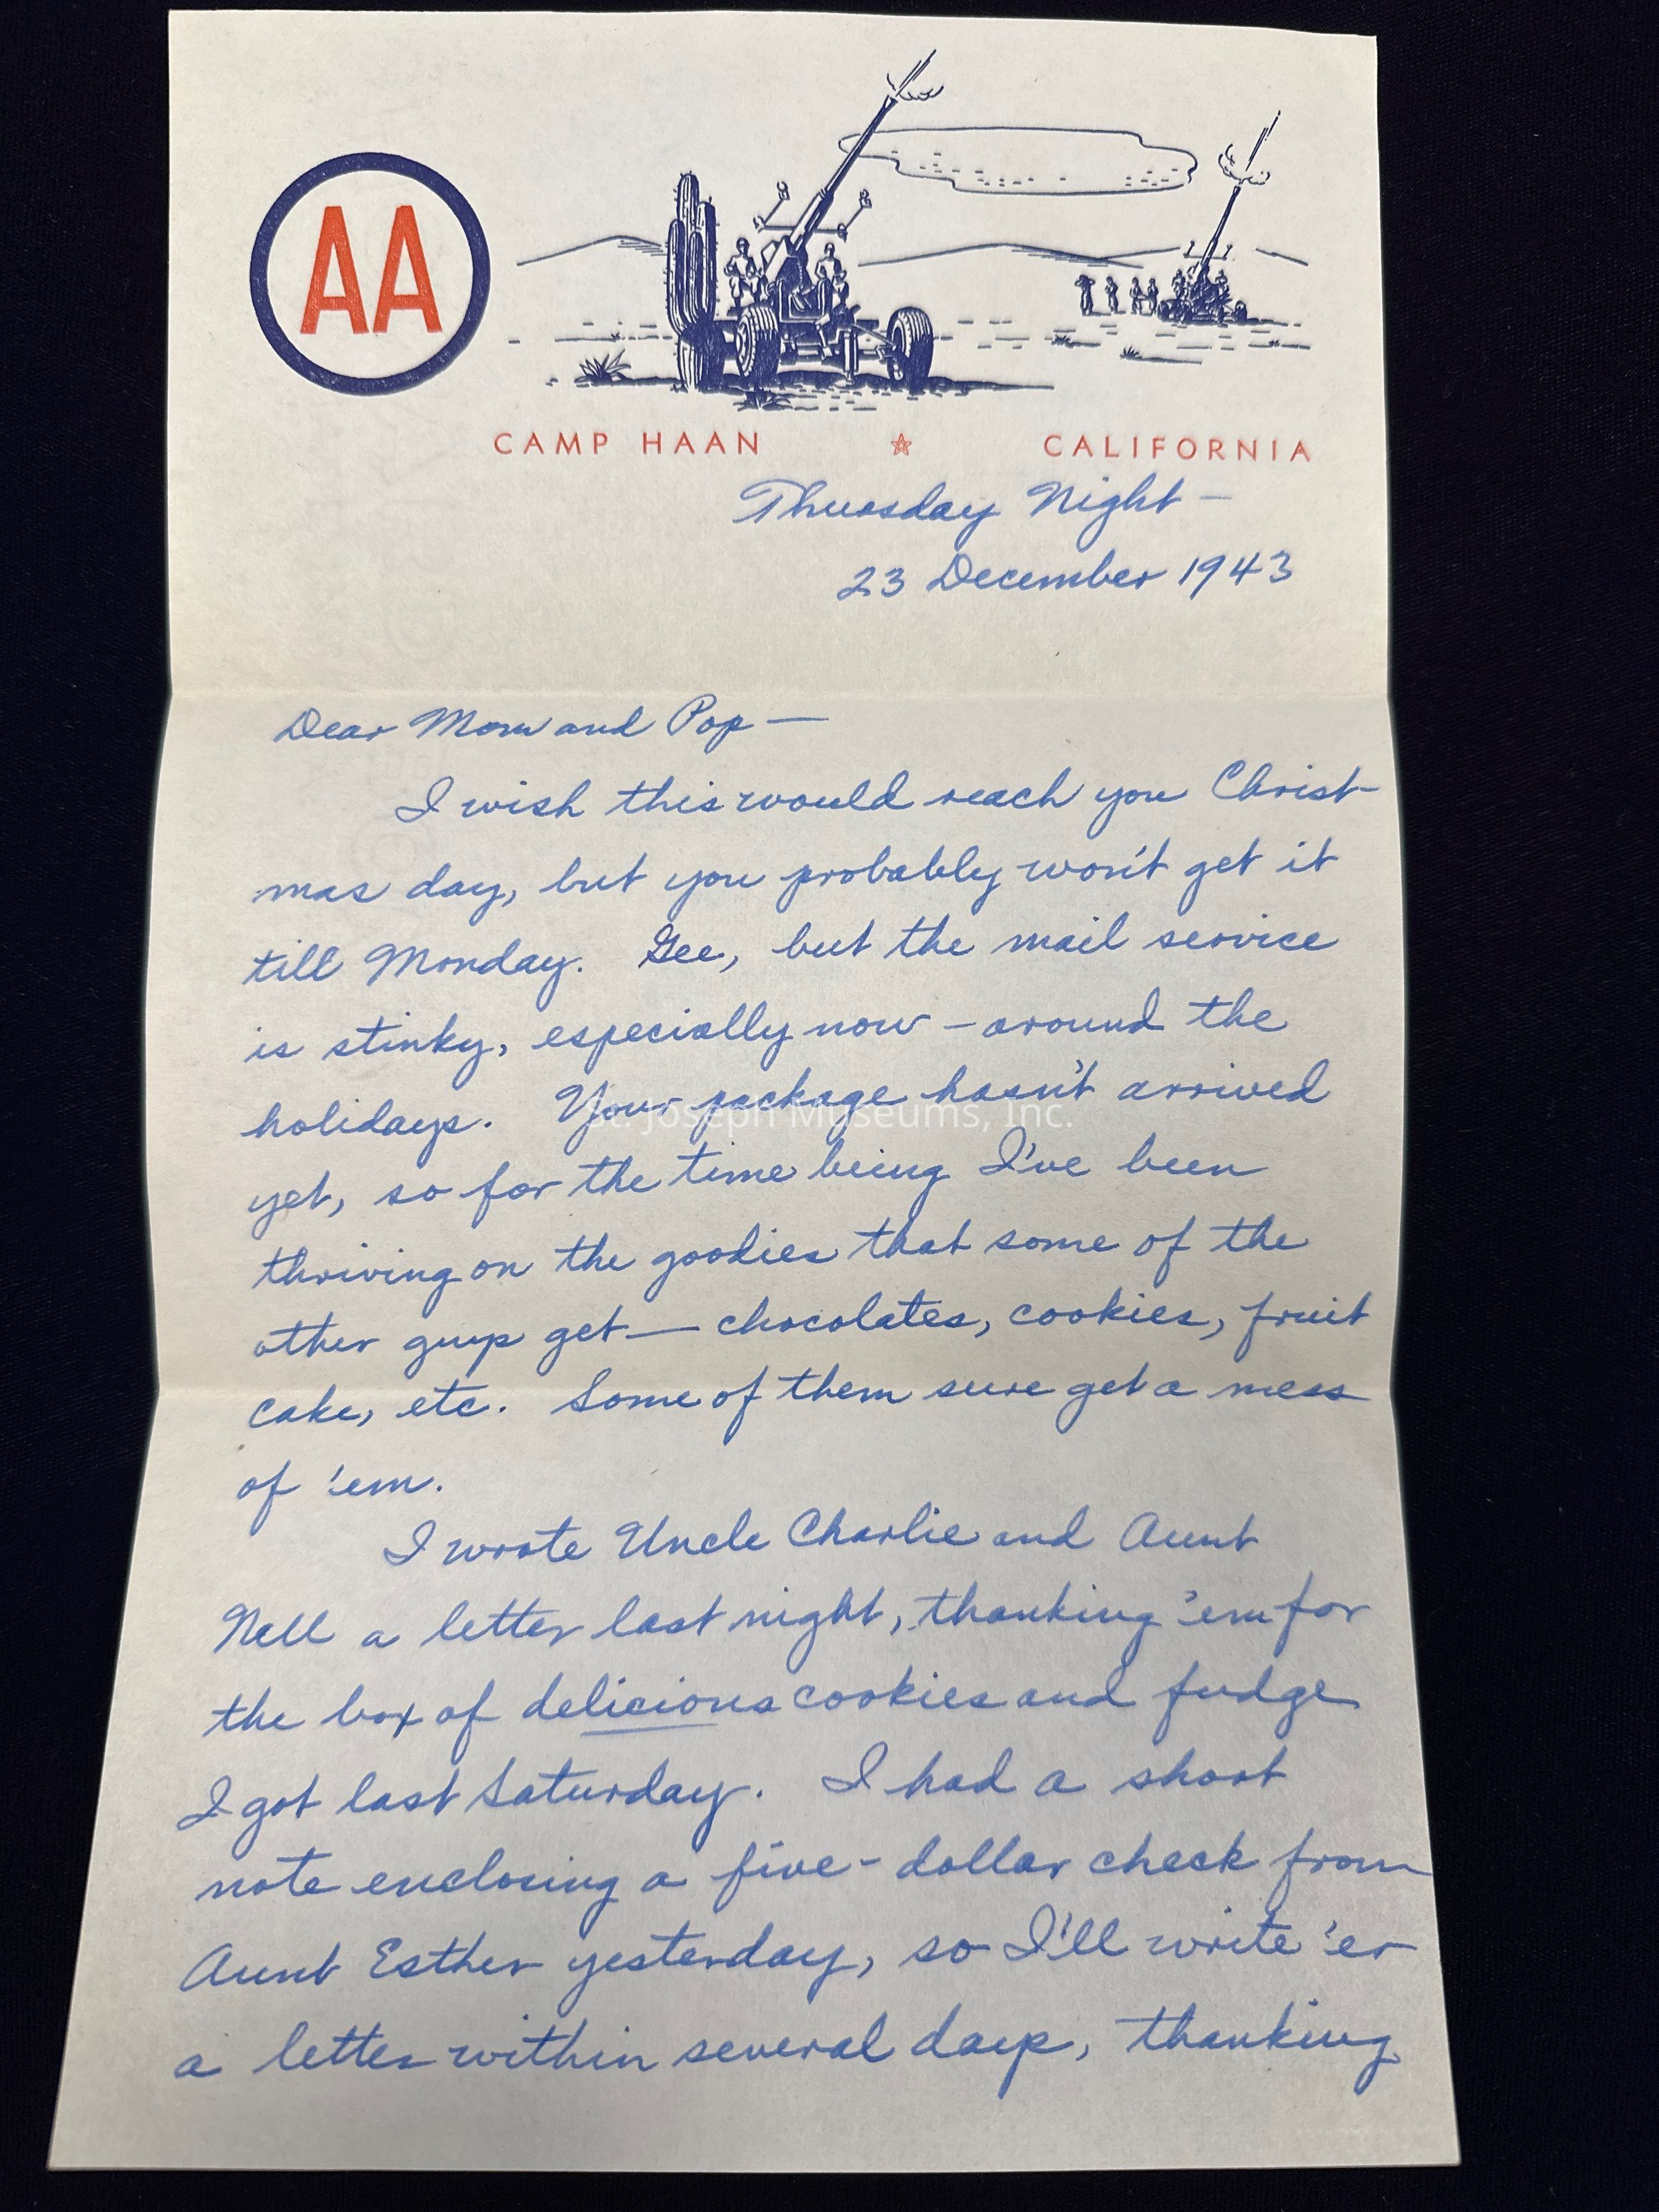 AA
CAMP HAAN ☆ CALIFORNIA
Thursday Night —
23 December 1943
Dear Mom and Pop —
I wish this would reach you Christ-
mas day, but you probably won't get it
till Monday. Gee, but the mail service
is stinky, especially now — around the
holidays. Your package hasn't arrived
St. Joseph Museums, Inc.
yet, so for the time being I've been
thriving on the goodies that some of the
other guys get — chocolates, cookies, fruit
cake, etc. Some of them sure get a mess
of 'em.
I wrote Uncle Charlie and Aunt
Nell a letter last night, thanking 'em for
the box of delicious cookies and fudge
I got last Saturday. I had a short
note enclosing a five-dollar check from
Aunt Esther yesterday, so I'll write 'er
a letter within several days, thanking